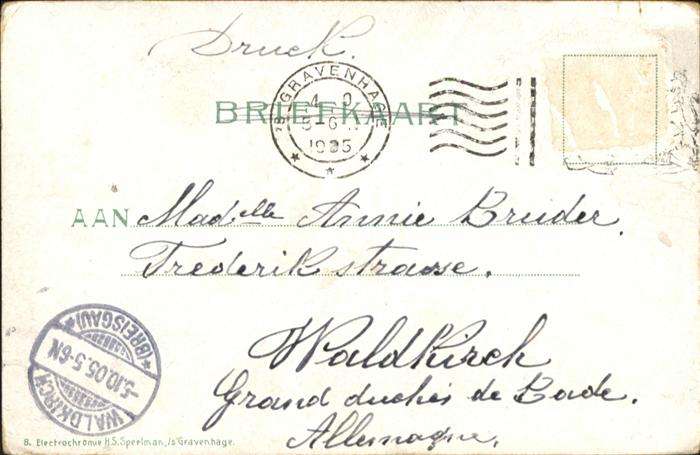 Druck.
'S-GRAVENHAGE
1905
BRIEFKAART
AAN Madelle Annie Bruder.
Frederikstrasse.
Waldkirch
Grand duchés de Bade.
Allemagne.
*(BREISGAU)*
-5.10.05.5-6N
WALDKIRCH
8. Electrochromie H.S. Speelman, 's Gravenhage.